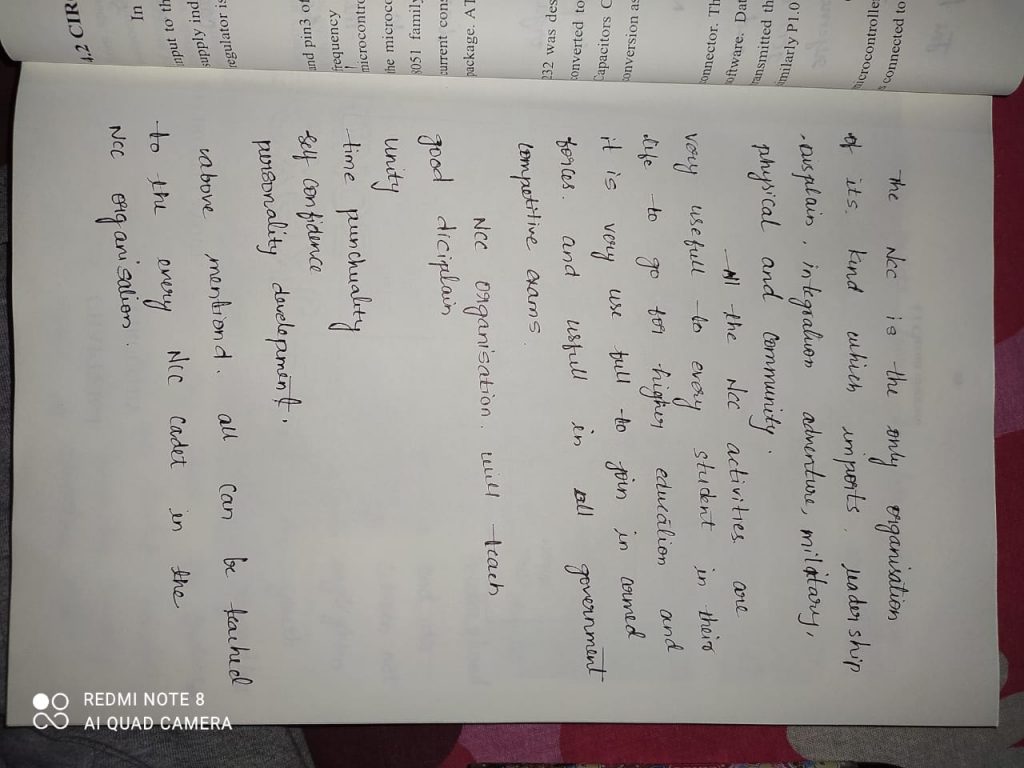 The NCC is the only organisation
of its kind which imports. leadership
physical and community.
All the NCC activities are
very usefull to every student in their
life to go for higher education and
it is very use full to join in armed
forces. and usfull in all government
competitive exams.
NCC organisation. will teach
good diciplain
unity
time punchuality
self confidence
personality development.
above mentiond. all can be teached
to the every NCC cadet in the
NCC organisation.
4.2 CIR
In
input to th
supply ind
regulator is
and pin3 of
frequency
microcontro
the microco
8051 family
current con
package. AT
232 was des
converted to
Capacitors C
conversion as
connector. Th
software. Dat
transmitted th
similarly P1.0
microcontroller
s connected to
REDMI NOTE 8
AI QUAD CAMERA